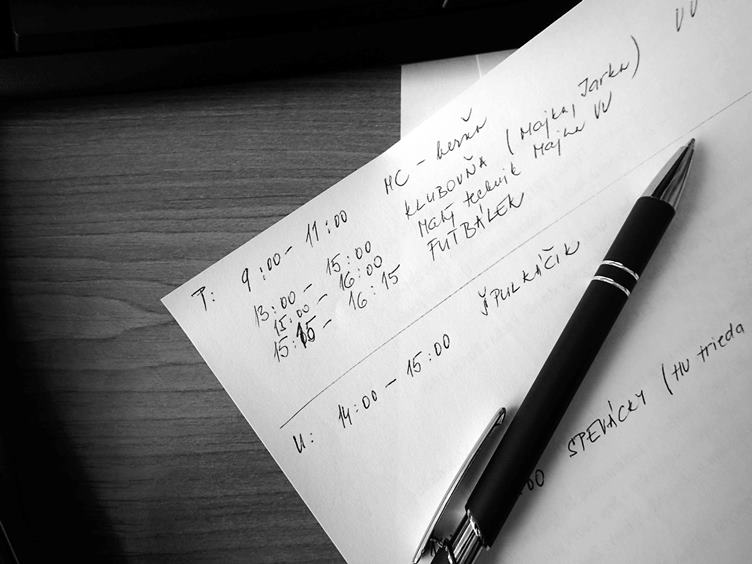 P: 9:00 - 11:00 MC -
13:00 - 15:00 KLUBOVŇA (Majka, Jarka) VV
15:00 - 16:00 Malý technik Majka VV
15:15 - 16:15 FUTBÁLEK
U: 14:00 - 15:00 ŠPULKÁČIK
00 SPEVÁCKY (HV trieda